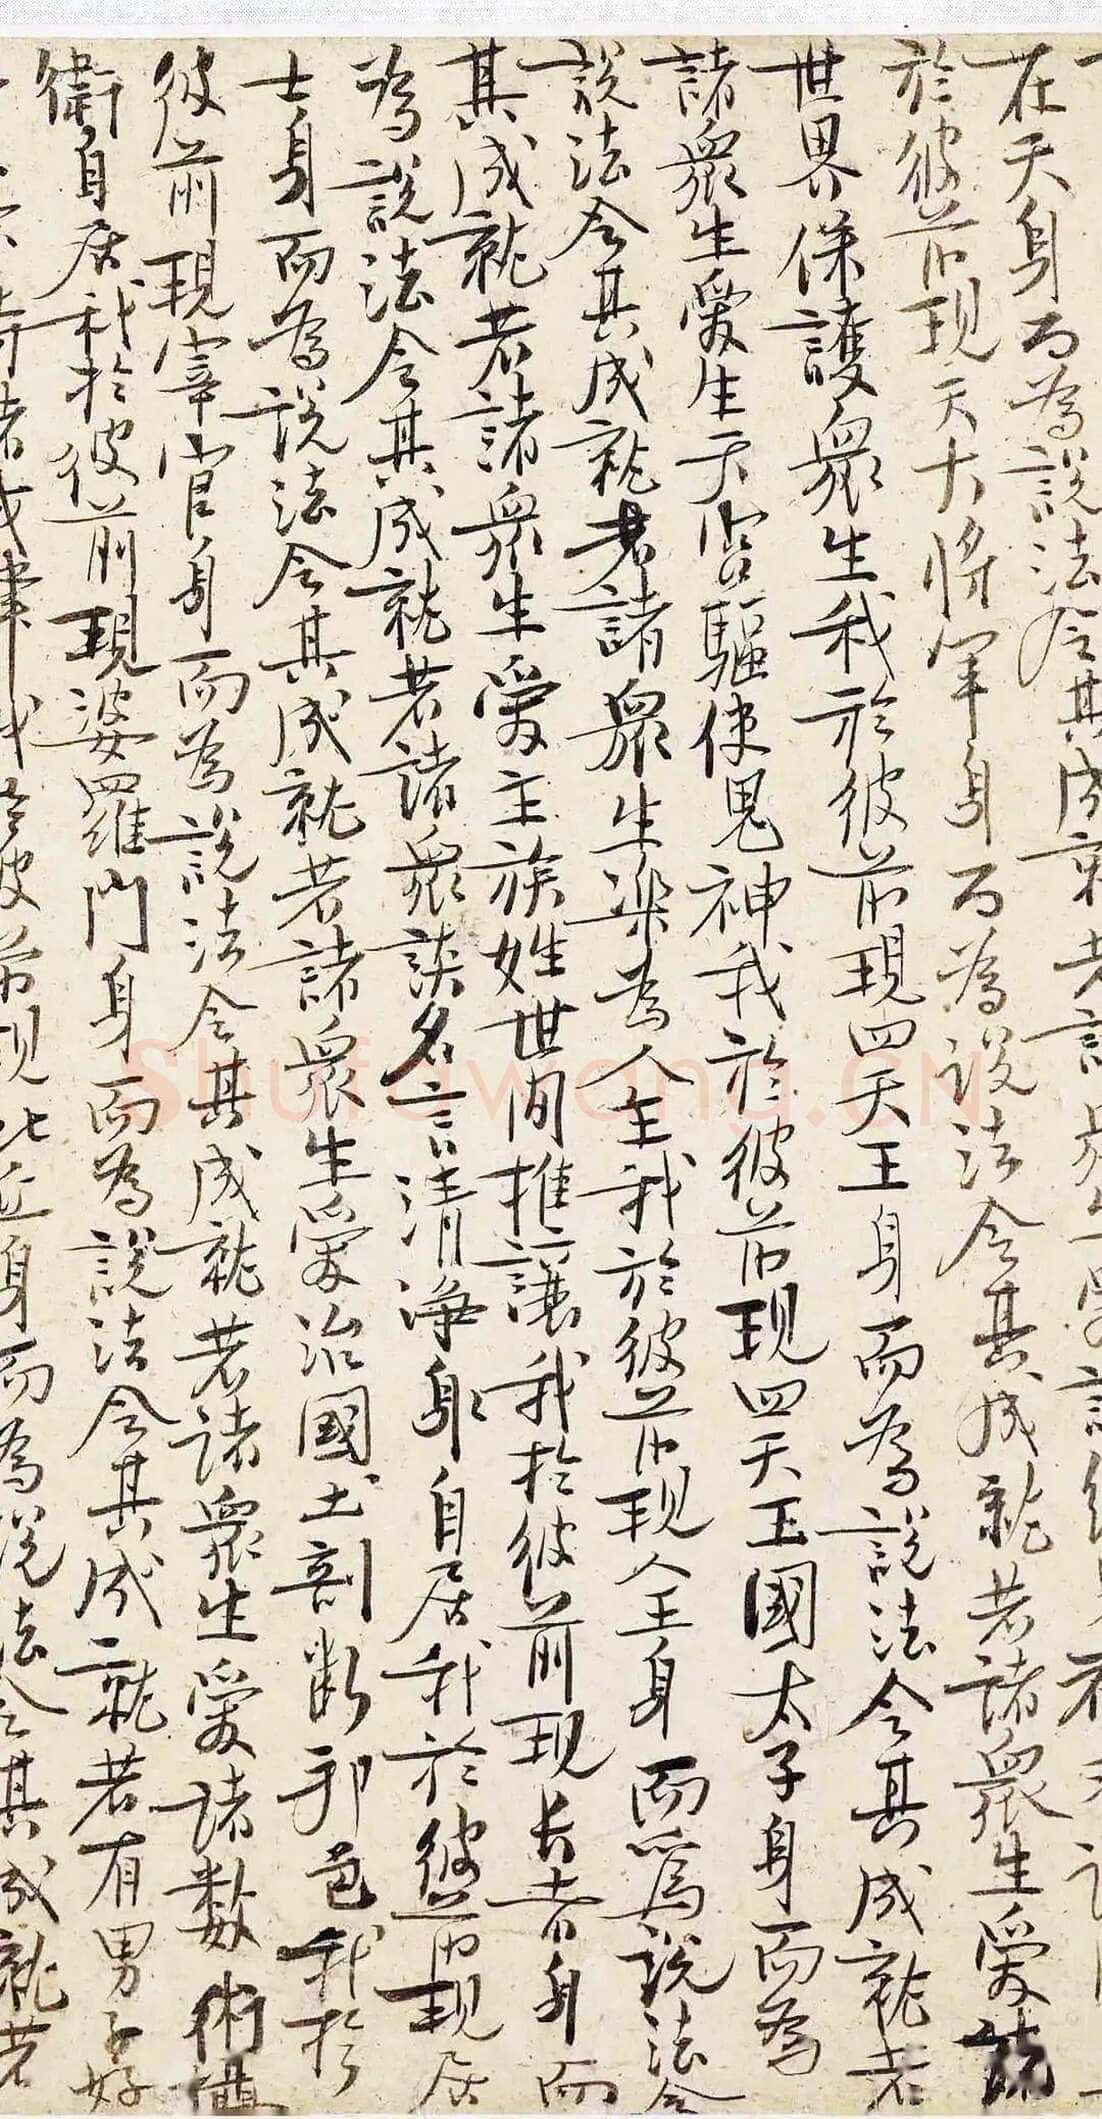 在天身而為說法令其成就若諸
於彼前現天大將軍身而為說法令其成就若諸衆生愛統
世界保護衆生我於彼前現四天王身而為說法令其成就若
諸衆生愛生天宮驅使鬼神我於彼前現四天王國太子身而為
說法令其成就若諸衆生樂為人王我於彼前現人王身而為說法令
其成就若諸衆生愛主族姓世間推讓我於彼前現長者身而
為說法令其成就若諸衆談名言清淨身自居我於彼前現居
士身而為說法令其成就若諸衆生愛治國土剖斷邦邑我於
彼前現宰官身而為說法令其成就若諸衆生愛諸數術攝
衛自居我於彼前現婆羅門身而為說法令其成就若有男子好
持諸戒律我於彼前現比丘身而為說法令其成就若
Shufawang.CN